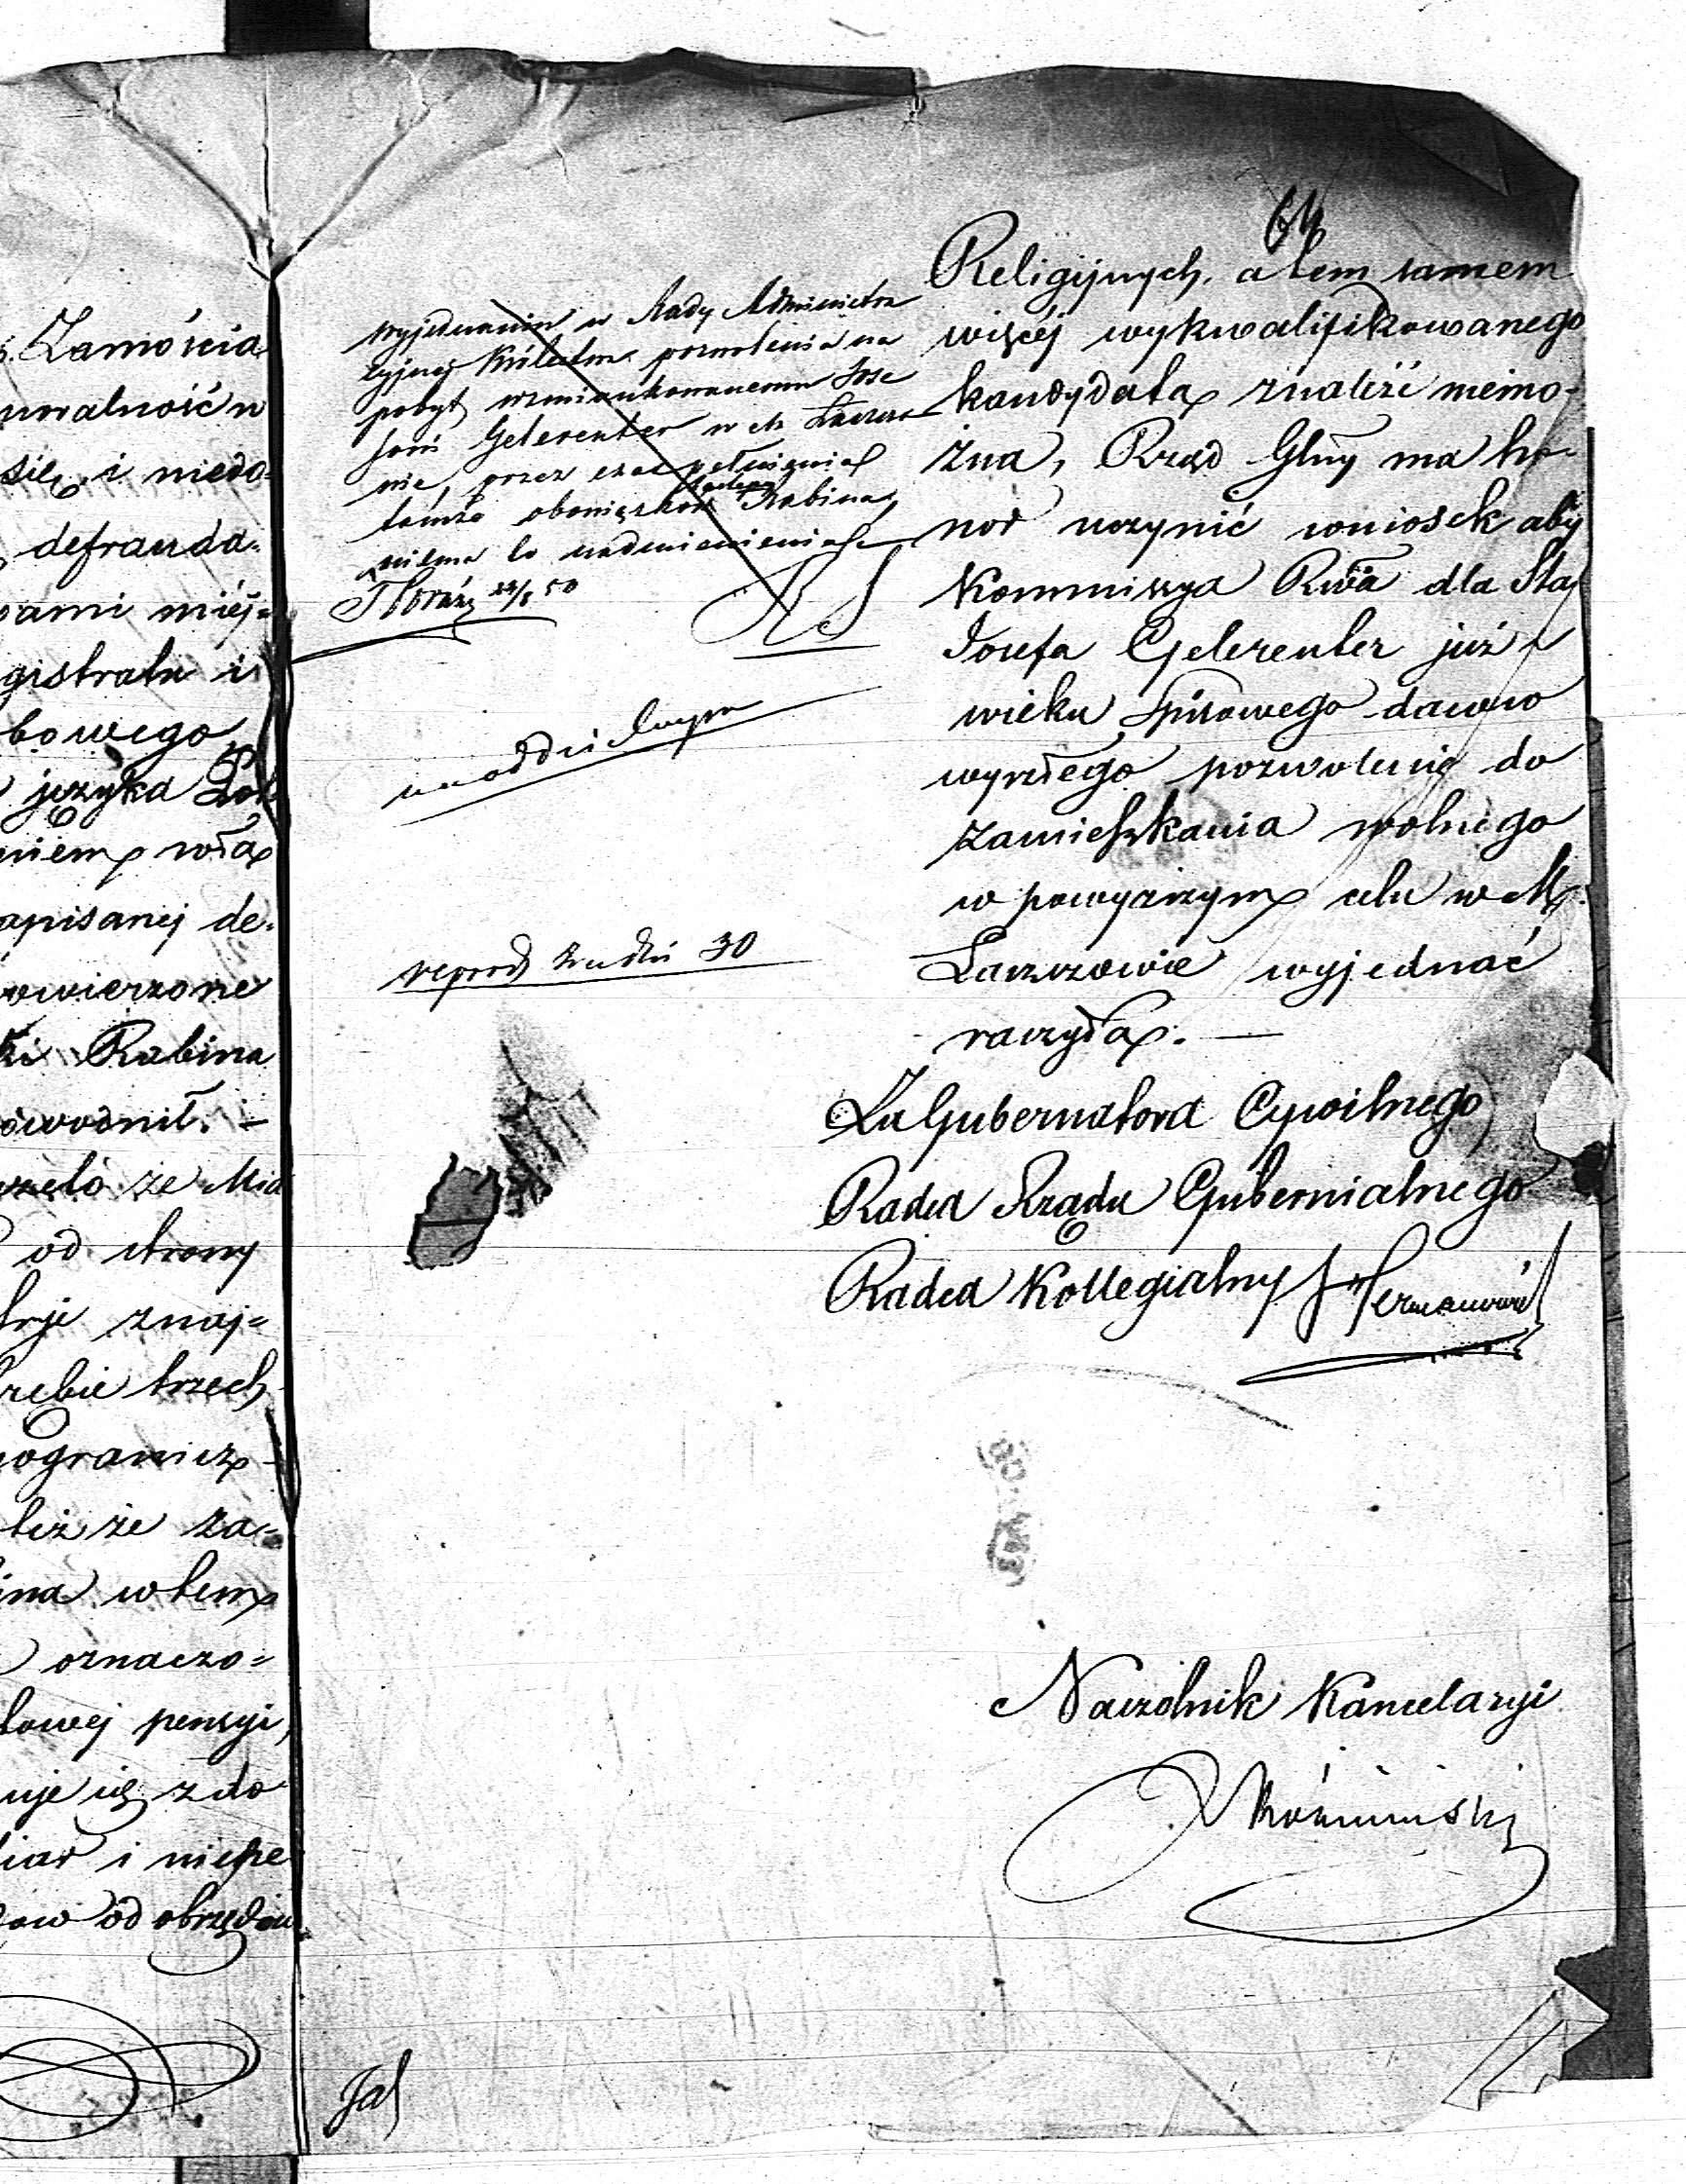 Zamościa
moralność w
się, i niedo-
defrauda-
ami miéj-
gistratu i
bowego
języka Pol
niem wła
apisanej de-
wierzone
ki Rabina
owodnił. –
że Mia
od strony
znaj=
trzech
ogranicz
też że za-
ina w tem
oznaczo=
towej pensyi,
uje się z do
iar i niepe
ow od obrzędów
64
wyjednanie w Rady Administra
cyjnej Królestwa pozwolenia na
pobyt wzmiankowanemu Jose
fowi Gelerenter w m. Łaszczo
wie, przez czas pełnienia
tamże obowiązków Rabina,
niema to nadmienienia
22/8 50
w oddzielnym
30
Religijnych, a tem samem
więcéj wykwalifikowanego
kandydata znaleźć niemo-
żna, Rząd Glny ma ho-
nor uczynić wniosek aby
Kommissya Rwa dla Sta
Josefa Gelerenter już z
wieku Spisowego dawno
wyszłego pozwolenie do
zamieszkania wolnego
w powyższym celu w M.
Łaszczowie wyjednać
raczyła. —
Za Gubernatora Cywilnego
Radca Rządu Gubernialnego
Radca Kollegialny
Naczelnik Kancelaryi